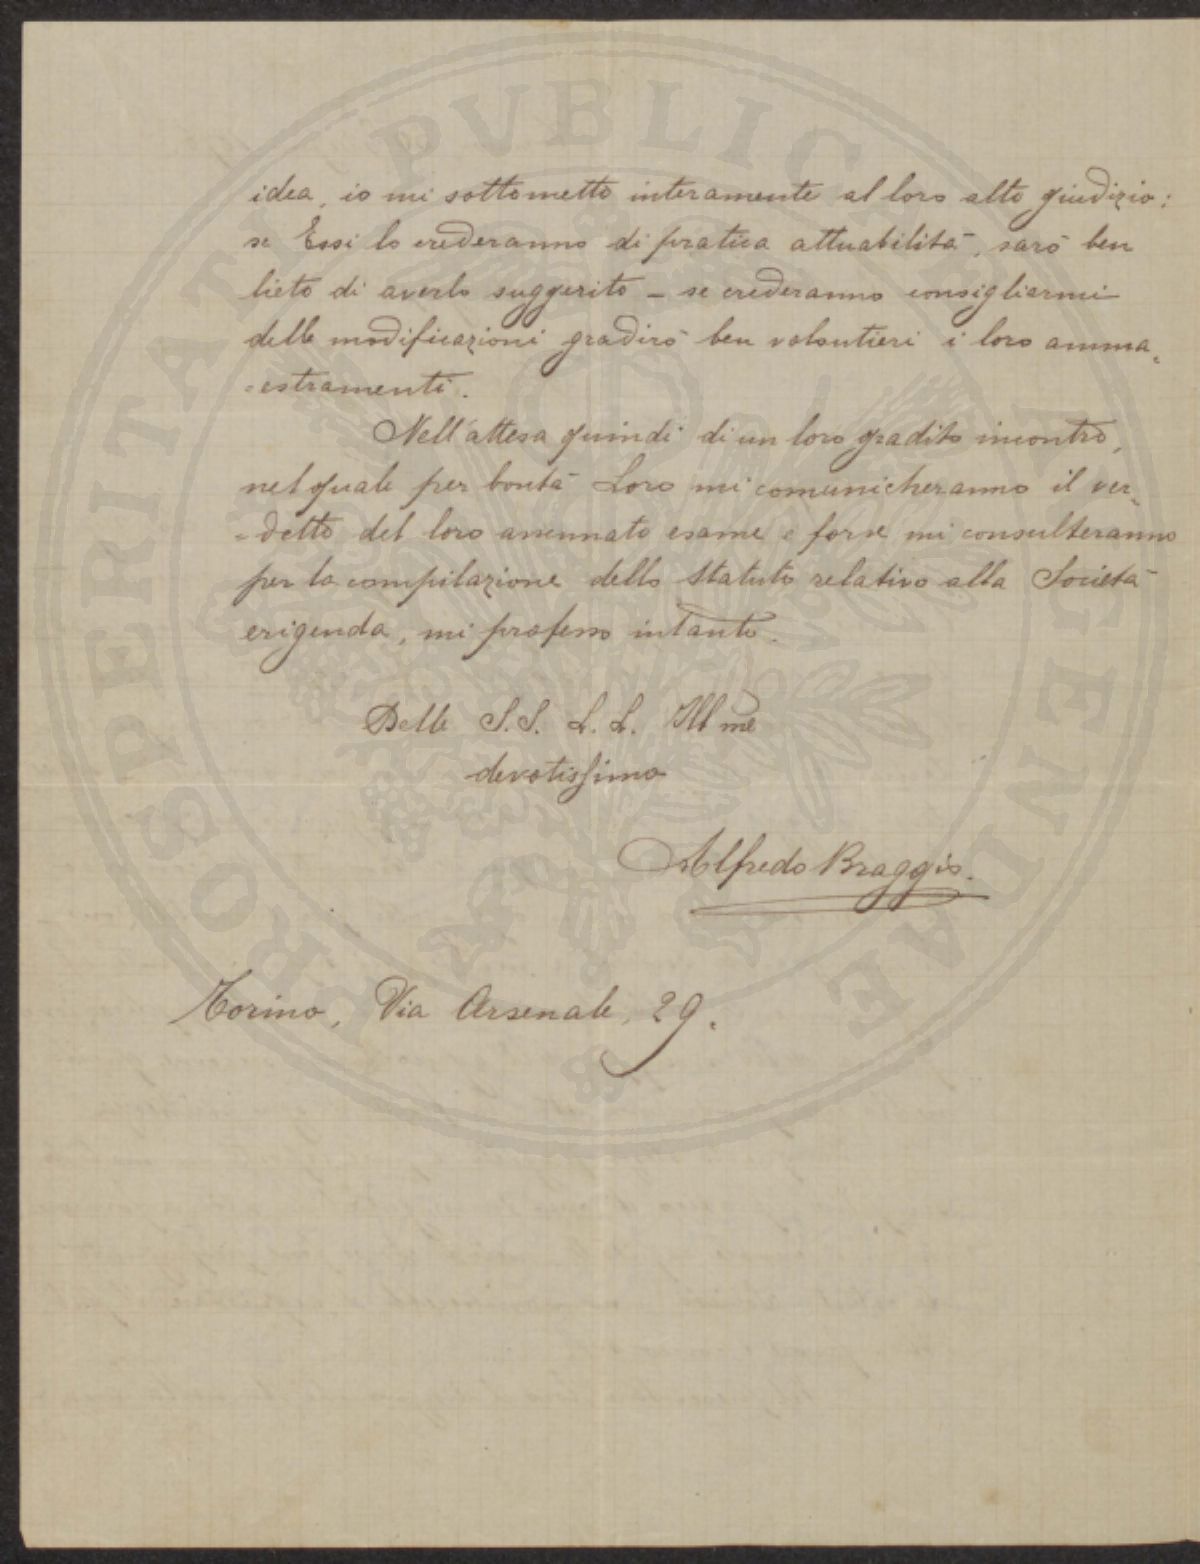 idea, io mi sottometto interamente al loro alto giudizio:
se Essi lo crederanno di pratica attuabilità, sarò ben
lieto di averlo suggerito – se crederanno consigliarmi
delle modificazioni gradirò ben volontieri i loro amma=
=estramenti.
Nell'attesa quindi di un loro gradito incontro,
nel quale per bontà Loro mi comunicheranno il ver=
=detto del loro esame e forse mi consulteranno
per la compilazione dello Statuto relativo alla Società
erigenda, mi professo intanto.
Delle S.S. L.L. Ill me
devotissimo
Alfredo Braggio.
Torino, Via Arsenale, 29.
PROSPERITATI PVBLICAE AVGENDAE